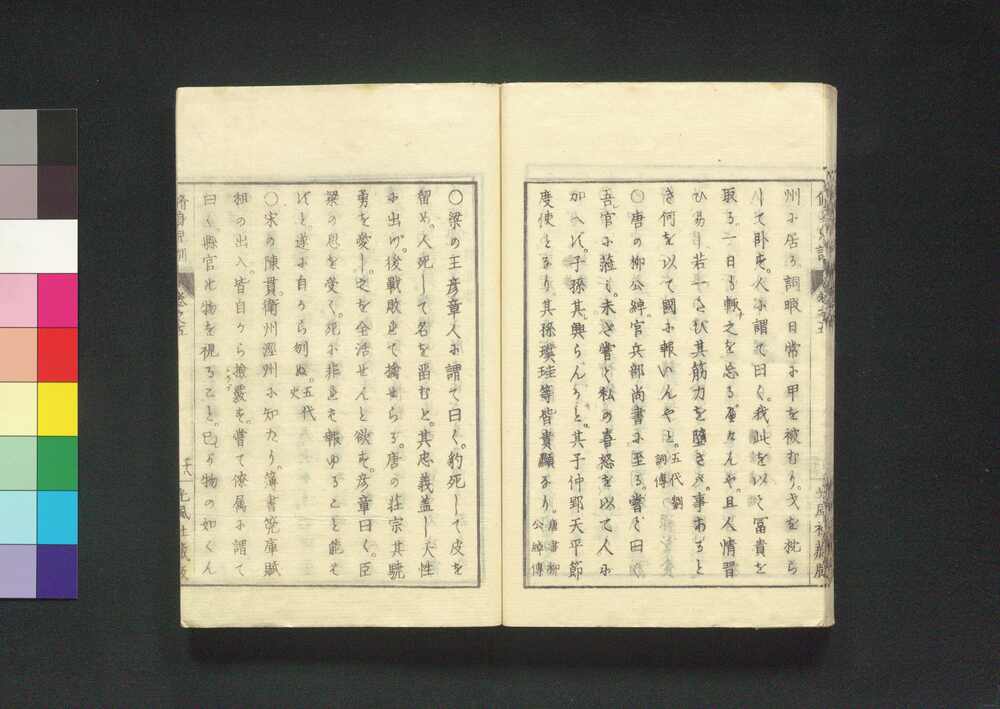 州ニ居ル詞暇日常ニ甲を被むり。戈を枕ら
して卧す。人ニ謂て曰く。我此を以て冨貴を
取る。一日も輙之を忘る可んや。且人情習
ひ易し若一たび其筋力を墮さば。事あると
き何を以て國ニ報いんやと。五代劉詞傳
〇唐の柳公綽。官兵部尚書ニ至る。嘗て曰く
吾官ニ莅し。未だ嘗て私の喜怒を以て人ニ
加へず。子孫其興らんかと。其子仲郢天平節
度使となり其孫璞珪等皆貴顯なり。唐書柳公綽傳
〇梁の王彦章人ニ謂て曰く。豹死して皮を
留め。人死して名を畱むと。其忠義蓋し天性
ニ出づ。後戰敗せて擒せらる。唐の荘宗其驍
勇を愛し。之を全活せんと欲す。彦章曰く。臣
梁の恩を受く。死ニ非ざを報ゆること能はず
と。遂ニ自から刎ぬ。五代史
〇宋の陳貫。衛州涇州ニ知たり。簿書筦庫賦
租の出入。皆自から撿覈す。嘗て僚属ニ謂て
曰く縣官の物を視ること。己が物の如くん
卷之六